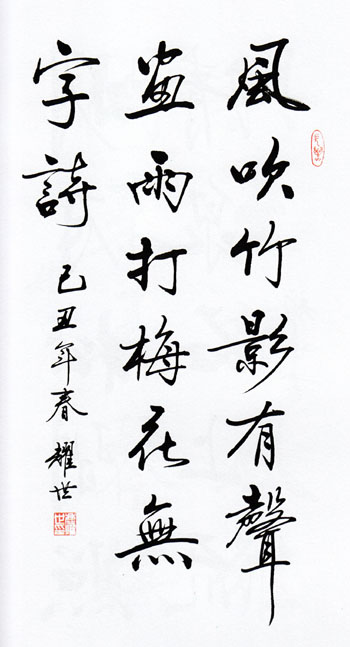 風吹竹影有聲
畫雨打梅花無
字詩
己丑年春 耀世